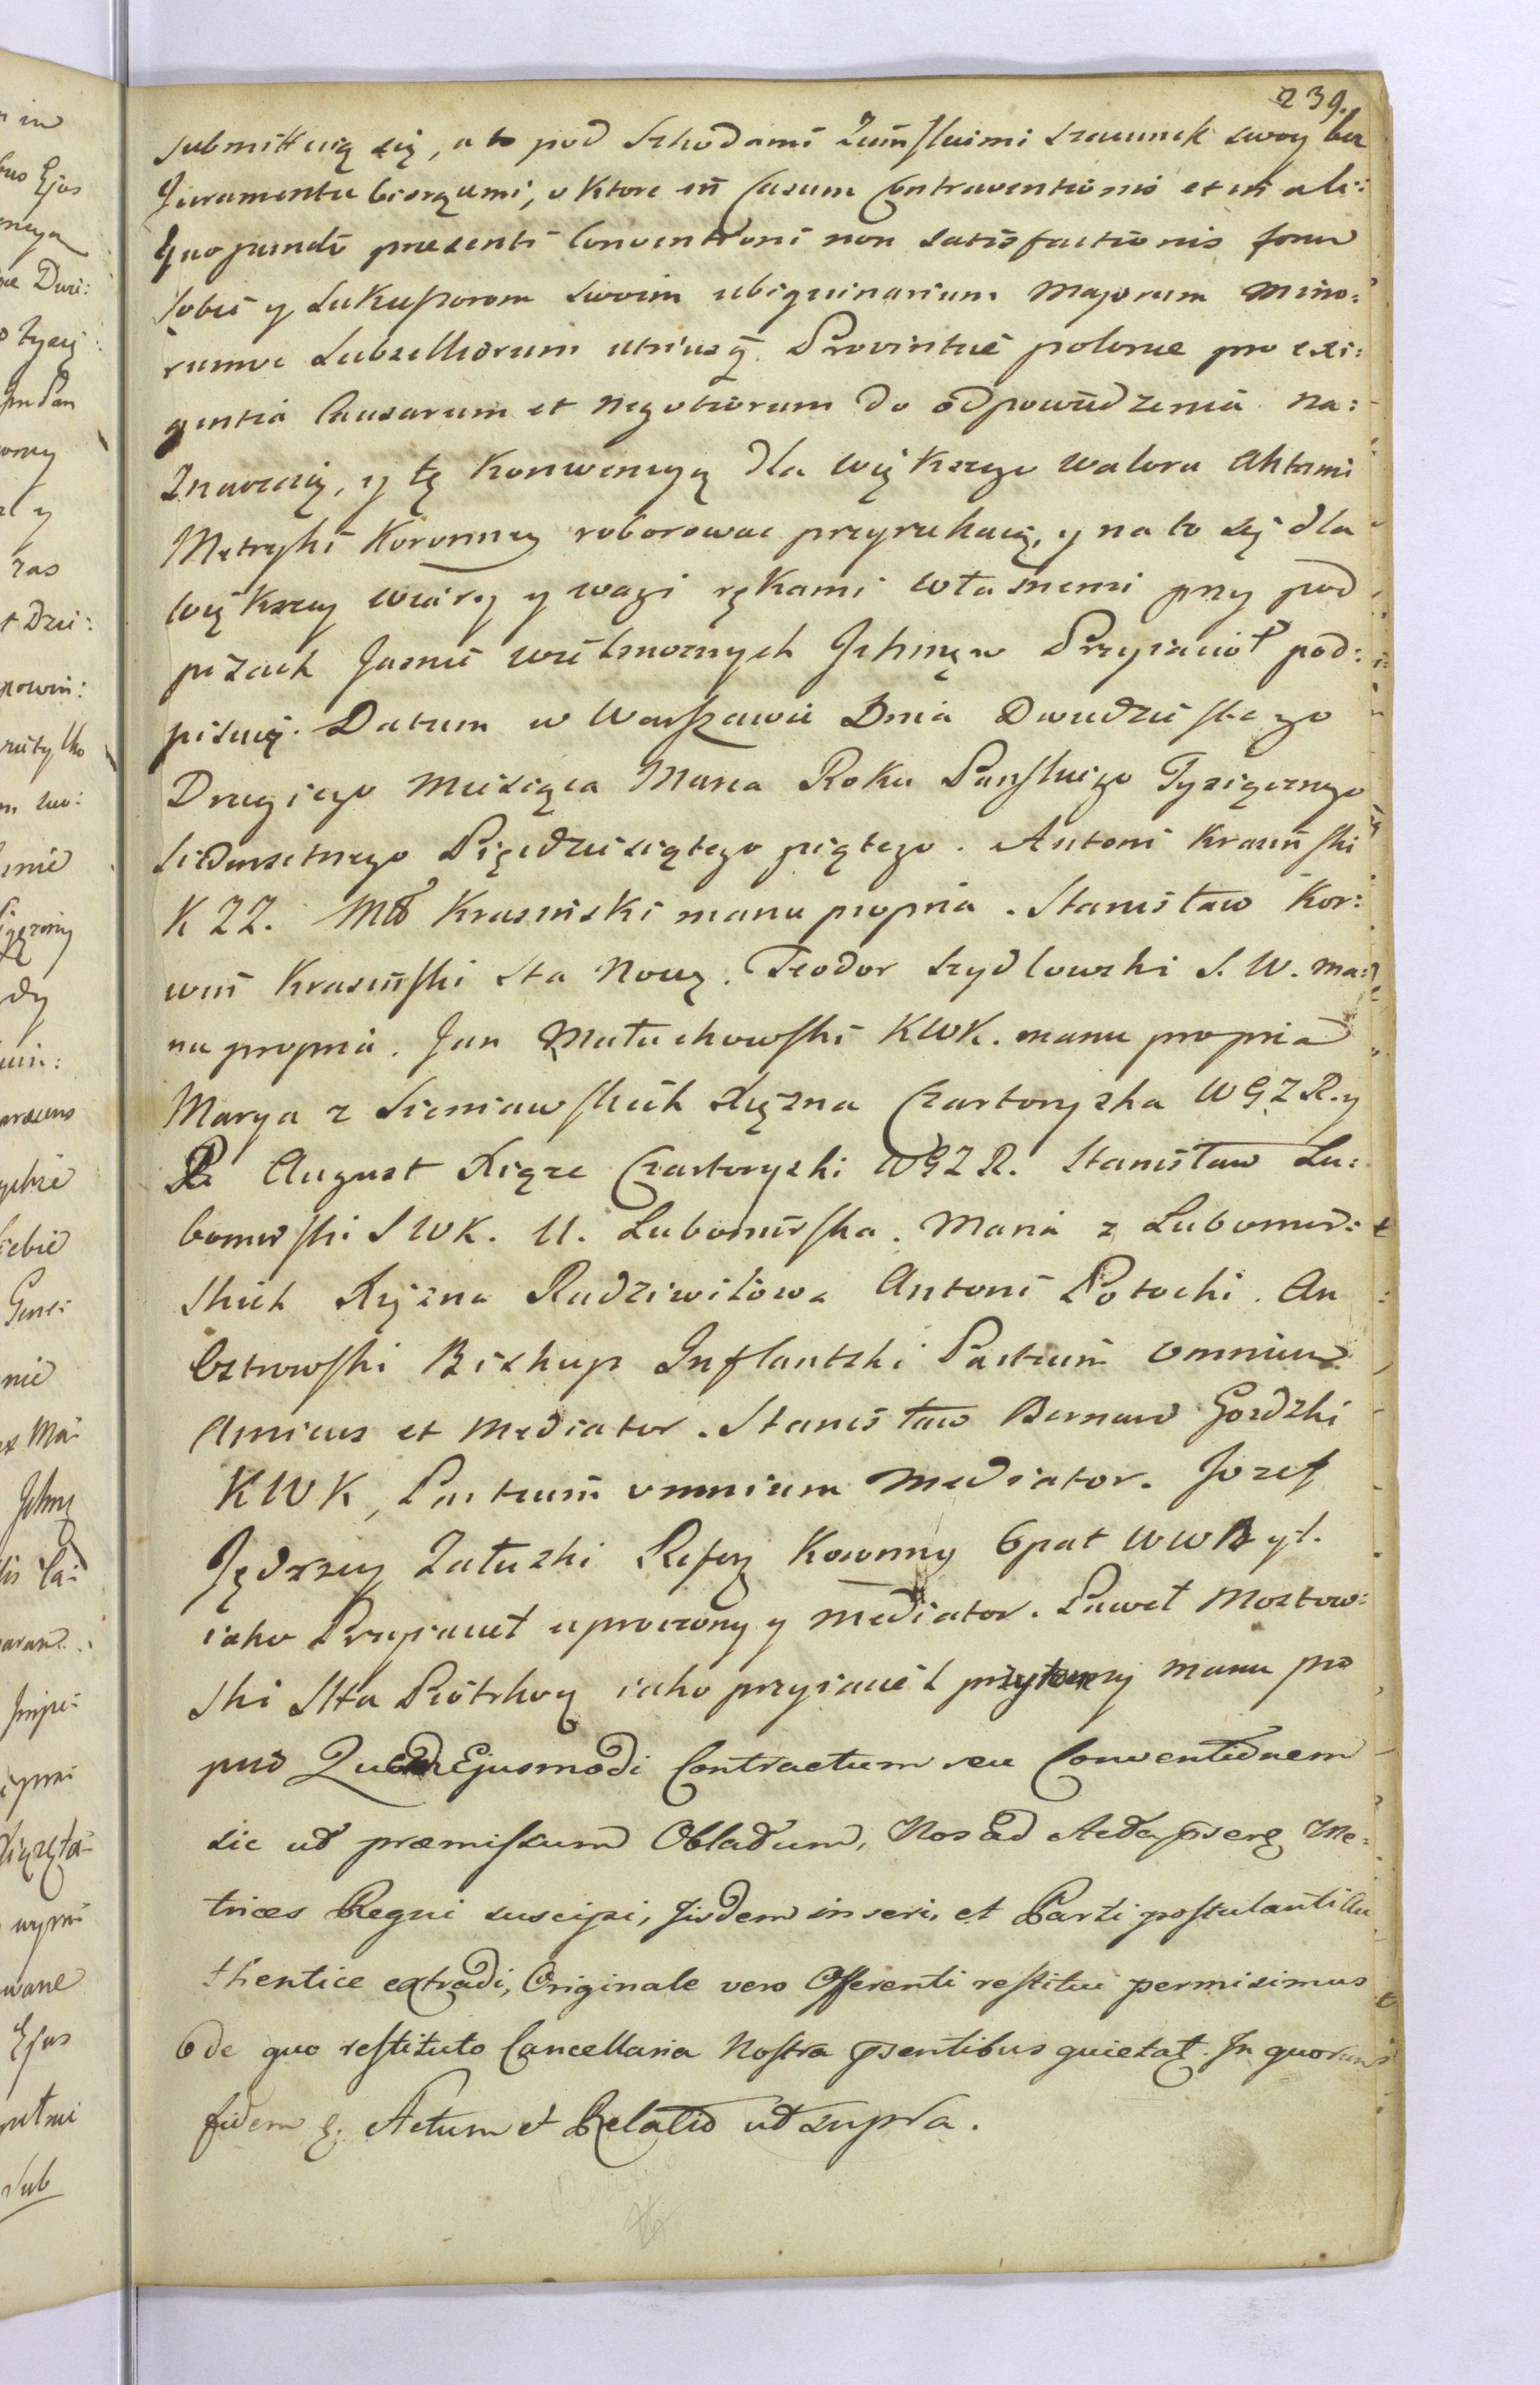 239.
submittuią się, a to pod Szkodami Ziemskiemi szacunek swoy bez
Juramentu biorącemi, o ktore in Casum Contraventionis et in ali:
quo puncto præsenti Conventioni non satisfactionis forum
sobie y Sukcessorom swoim ubiquinarium Majorum Mino:
rumve Subselliorum utriusq. Provintiæ polonæ pro exi:
gentia Causarum et Negotiorum do odpowiedzenia na:
znaczaią, y tę Konwencyą dla większego waloru Aktami
Metryki Koronney roborować przyrzekaią, y na to się dla
większey wiary y wagi rękami własnemi przy pod
pisach Jasnie wielmoznych Ichmcw Przyiacioł pod:
pisuią. Datum w Warszawie Dnia Dwudziestego
Drugiego Miesiąca Marca Roku Panskiego Tysiącznego
Siedmsetnego Pięcdziesiątego piątego. Antoni Krasinski
K Z Z. MB Krasinski manu propria. Stanisław Kor:
win Krasinski Sta Nowy. Teodor Szydlowski S. W. ma:
nu propria. Jan Małachowski KWK. manu propria
Marya z Sieniawskich Xięzna Czartoryska WGZR. y
R August Xiąze Czartoryski WGZR. Stanisław Lu:
bomirski SWK. U. Lubomirska. Maria z Lubomir:
skich Xięzna Radziwiłowa Antoni Potocki. An
Ostrowski Biskup Inflantski Partium omnium
Amicus et Mediator. Stanisław Bernard Gozdzki
KWK, Partium omnium Mediator. Jozef
Jędrzey Załuski Refery Koronny Opat WWB ył.
iako Przyiaciel uproszony y Mediator. Paweł Mostow:
ski Stta Piotrkoy iako przyiaciel przytomny manu pro
pria Quod Ejusmodi Contractum seu Conventionem
sic ut præmissum Oblatum, Nos ad Acta pserq Me:
trices Regni suscipi, Jisdem inseri, et Parti postulanti au
thentice extradi, Originale vero Offerenti restitui permisimus
de quo restituto Cancellaria Nostra psentibus quietat. In quorum
fidem q. Actum et Relatio ut supra.